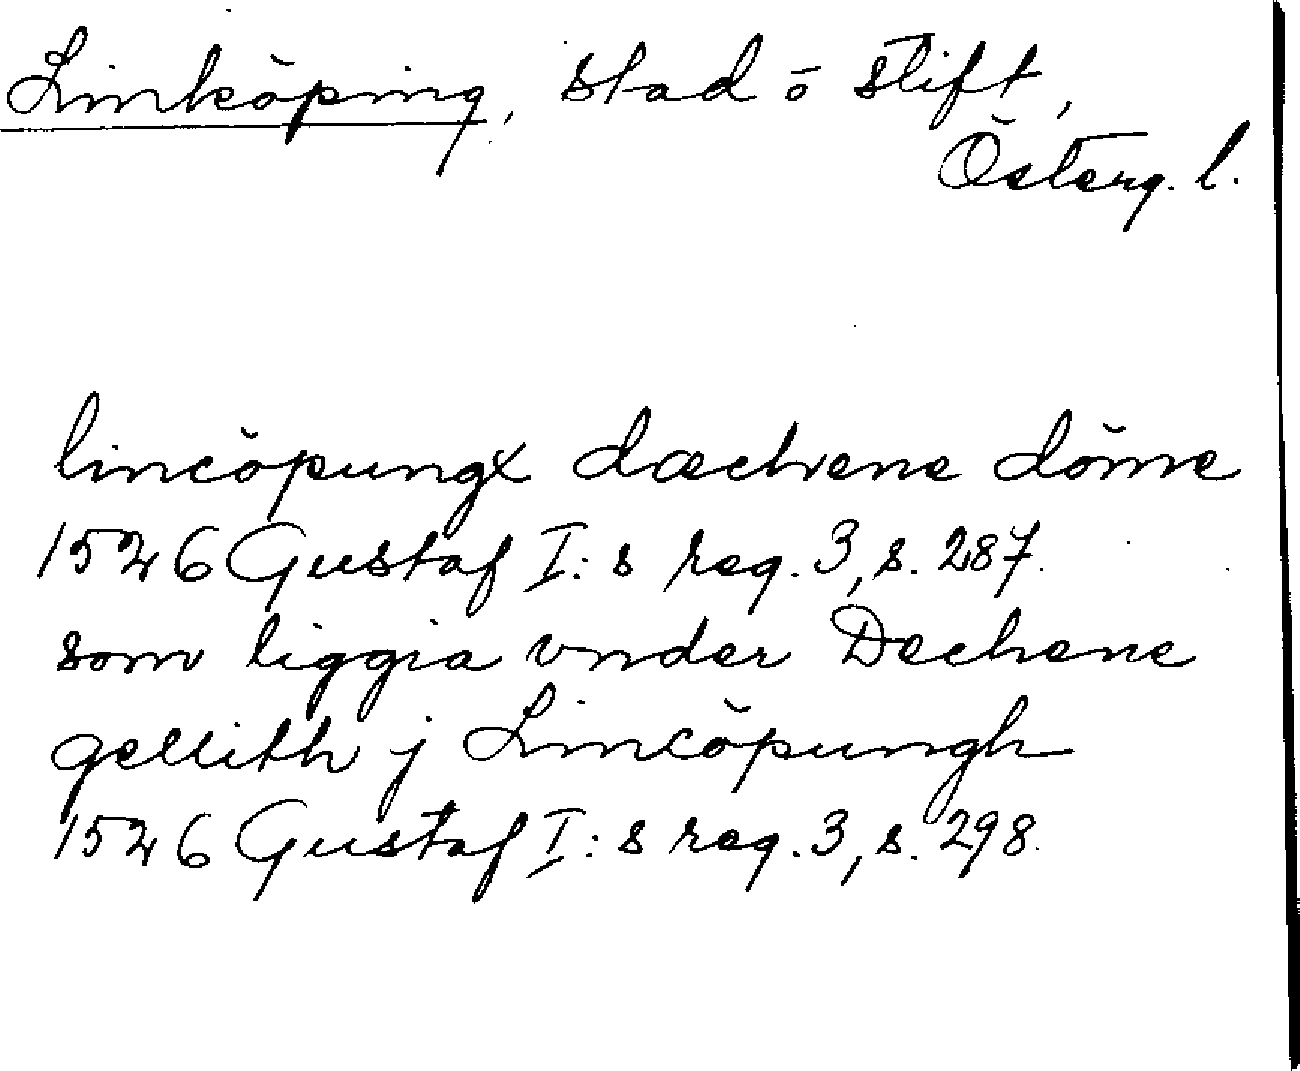 Linköping, stad o stift,
Österg. l.
lincöpungx dæchene döme
1526 Gustaf I:s reg. 3, s. 287.
som liggia vnder Dechene
gellith j Lincöpungh
1526 Gustaf I:s reg. 3, s. 298.